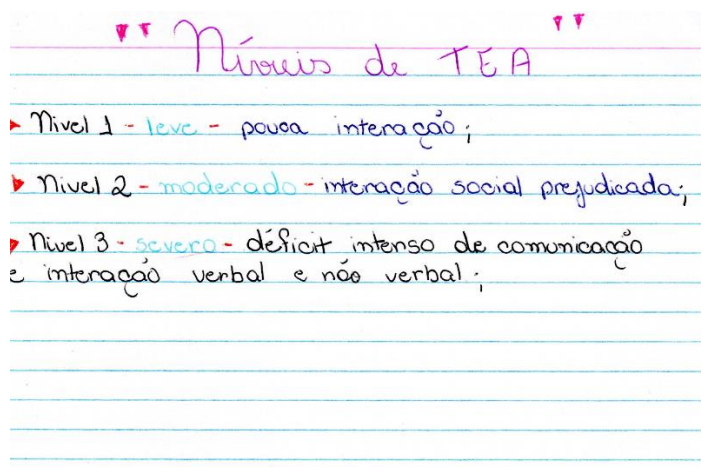 "Níveis de TEA"
Nivel 1 - leve - pouca interação;
Nivel 2 - moderado - interação social prejudicada;
Nivel 3 - severo - déficit intenso de comunicação
e interação verbal e não verbal;